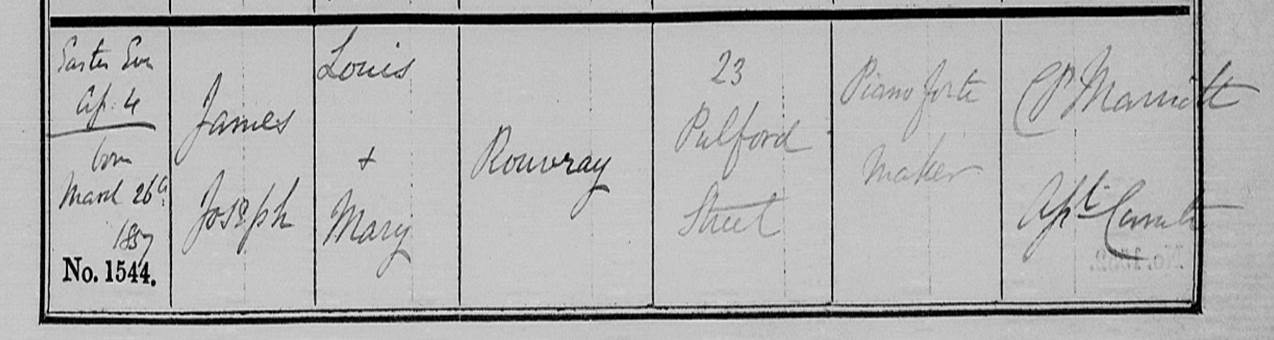 Easter Eve
Ap. 4
born
March 26
1857
No. 1544.
James
Joseph
Louis
+
Mary
Rouvray
23
Pulford
Street
Piano forte
maker
C P Marriott
Curate